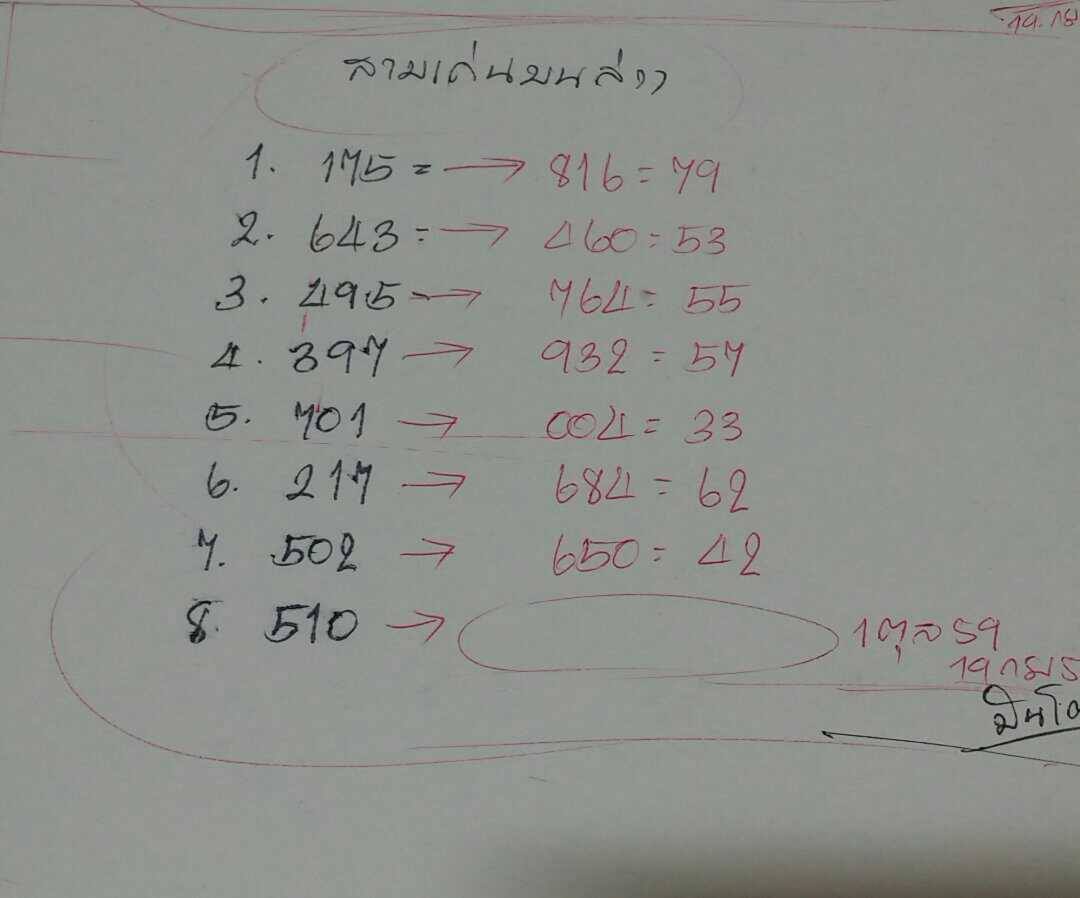 19. กย
สามเด่นบนล่าง
1. 175 = → 816 = 79
2. 643 = → 460 = 53
3. 495 → 764 = 55
4. 397 → 932 = 57
5. 701 → 004 = 33
6. 217 → 684 = 62
7. 502 → 650 = 42
8. 510 →
1 ตุล 59
19 กย 5